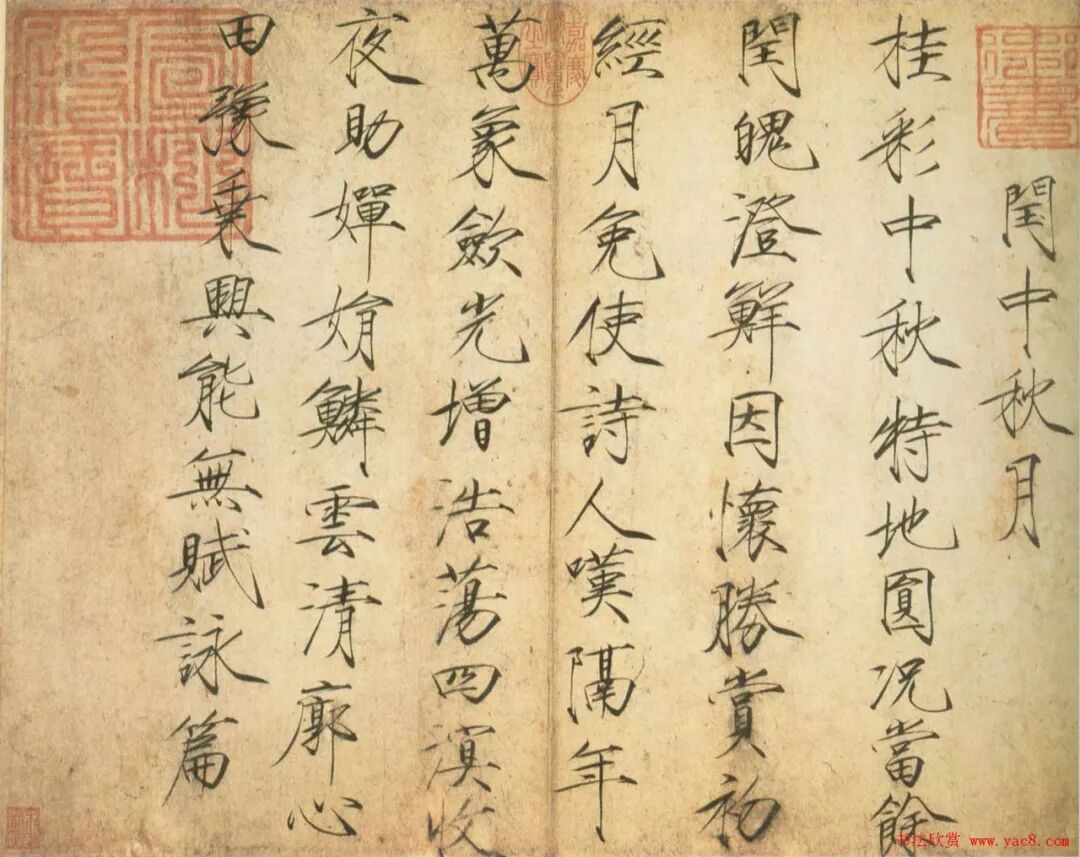 閏中秋月
桂彩中秋特地圓况當餘
閏魄澄鮮因懷勝賞初
經月免使詩人嘆隔年
萬象斂光增浩蕩四溟收
夜助嬋娟鱗雲清廓心
田豫乘興能無賦詠篇
书法欣赏 www.yac8.com